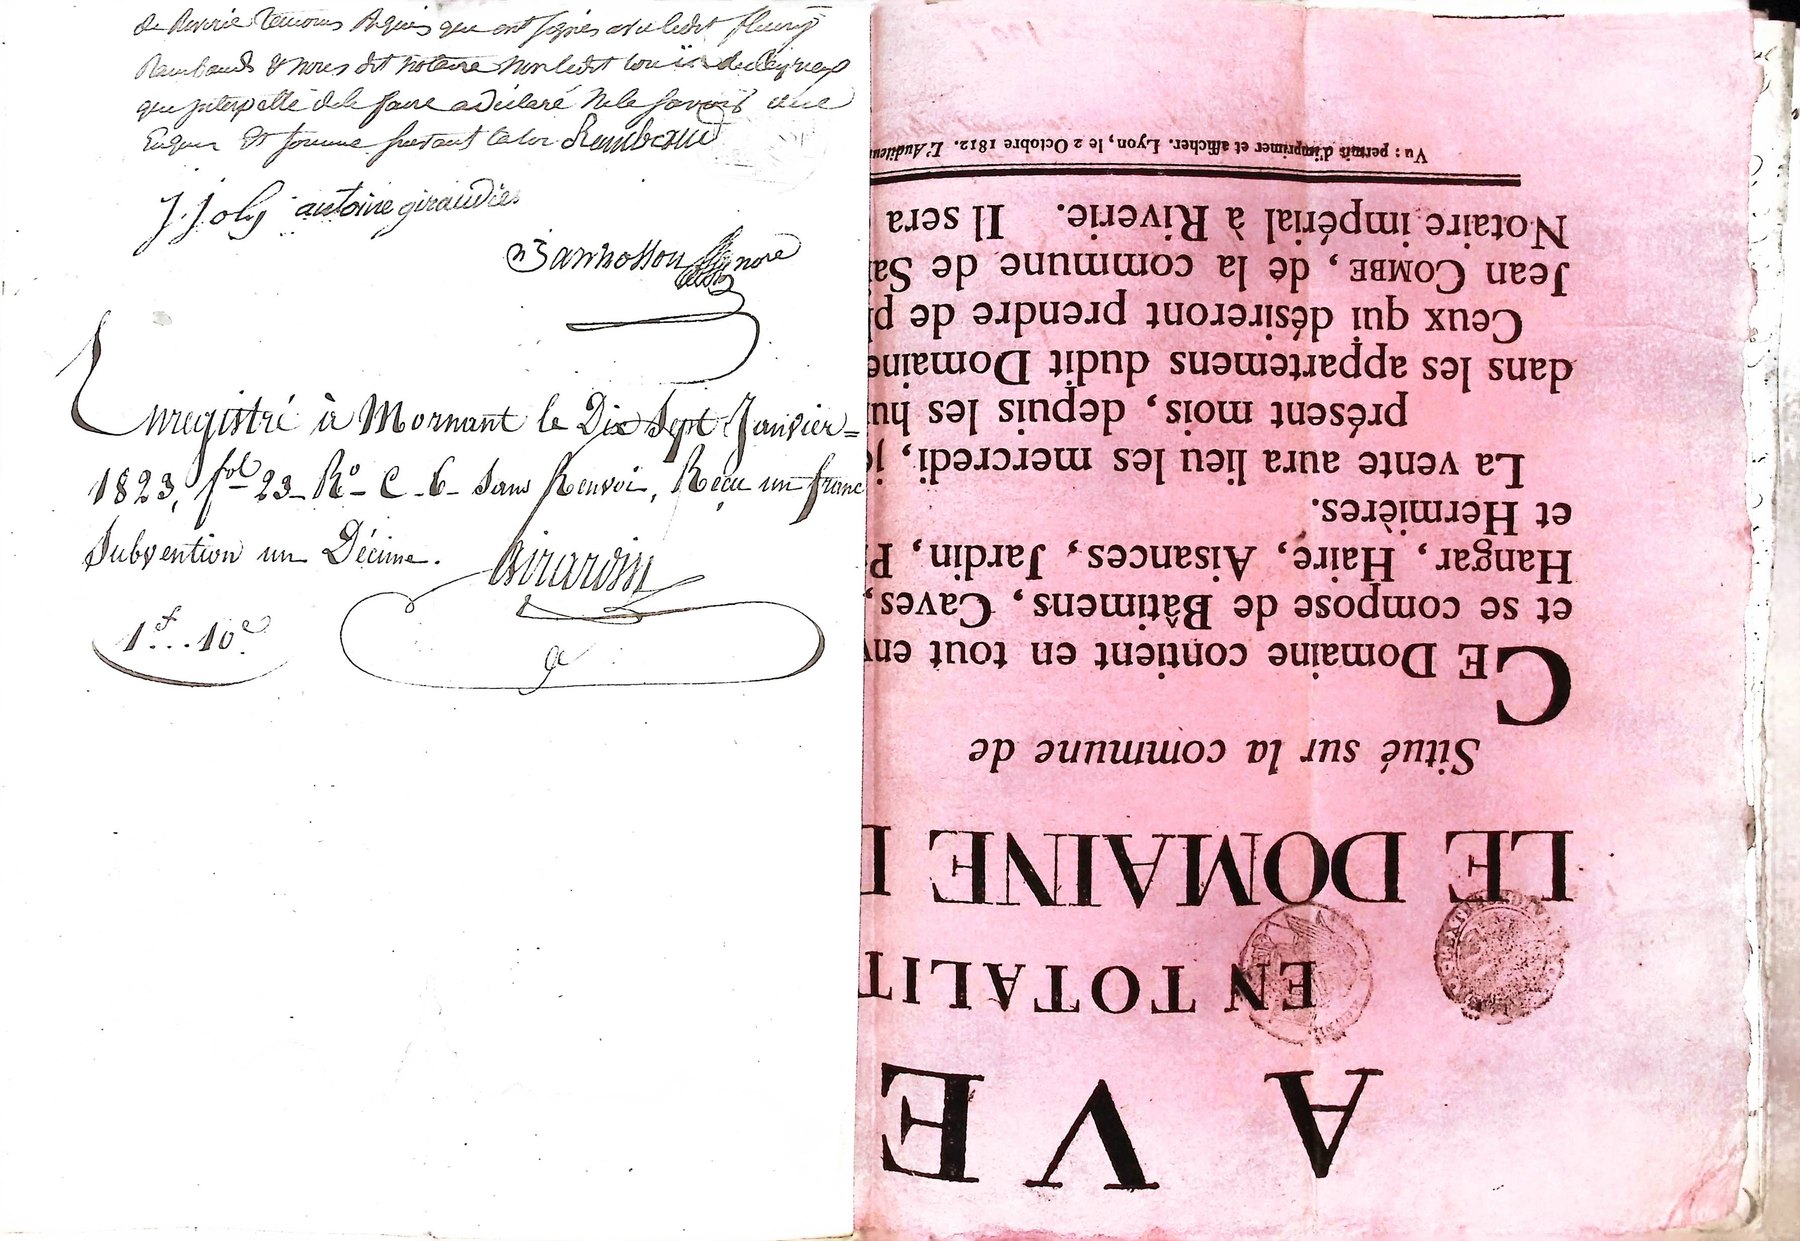 de Riverie temoins Requis qui ont signés avec ledit fleury
Rambaud & nous dit notaire non ledit Louis
que interpellé de le faire a déclaré ne le savoir
Et somme suivant la loi Rambaud
J. Joly antoine giraudier
not.re
Enregistré à Mornant le Dix Sept Janvier =
1823, fol 23 Ro C. 6 sans Renvoi, Reçu un franc
Subvention un Décime.
Girardin
1f... 10c.
A VE
EN TOTALIT
LE DOMAINE D
Situé sur la commune de
CE Domaine contient en tout env
et se compose de Bâtimens, Caves,
Hangar, Haire, Aisances, Jardin, P
et Hermières.
La vente aura lieu les mercredi, j
présent mois, depuis les hu
dans les appartemens dudit Domaine
Ceux qui désireront prendre de pl
Jean COMBE, de la commune de Sa
Notaire impérial à Riverie. Il sera
Vu : permis d'imprimer et afficher. Lyon, le 2 Octobre 1812. L'Auditeur